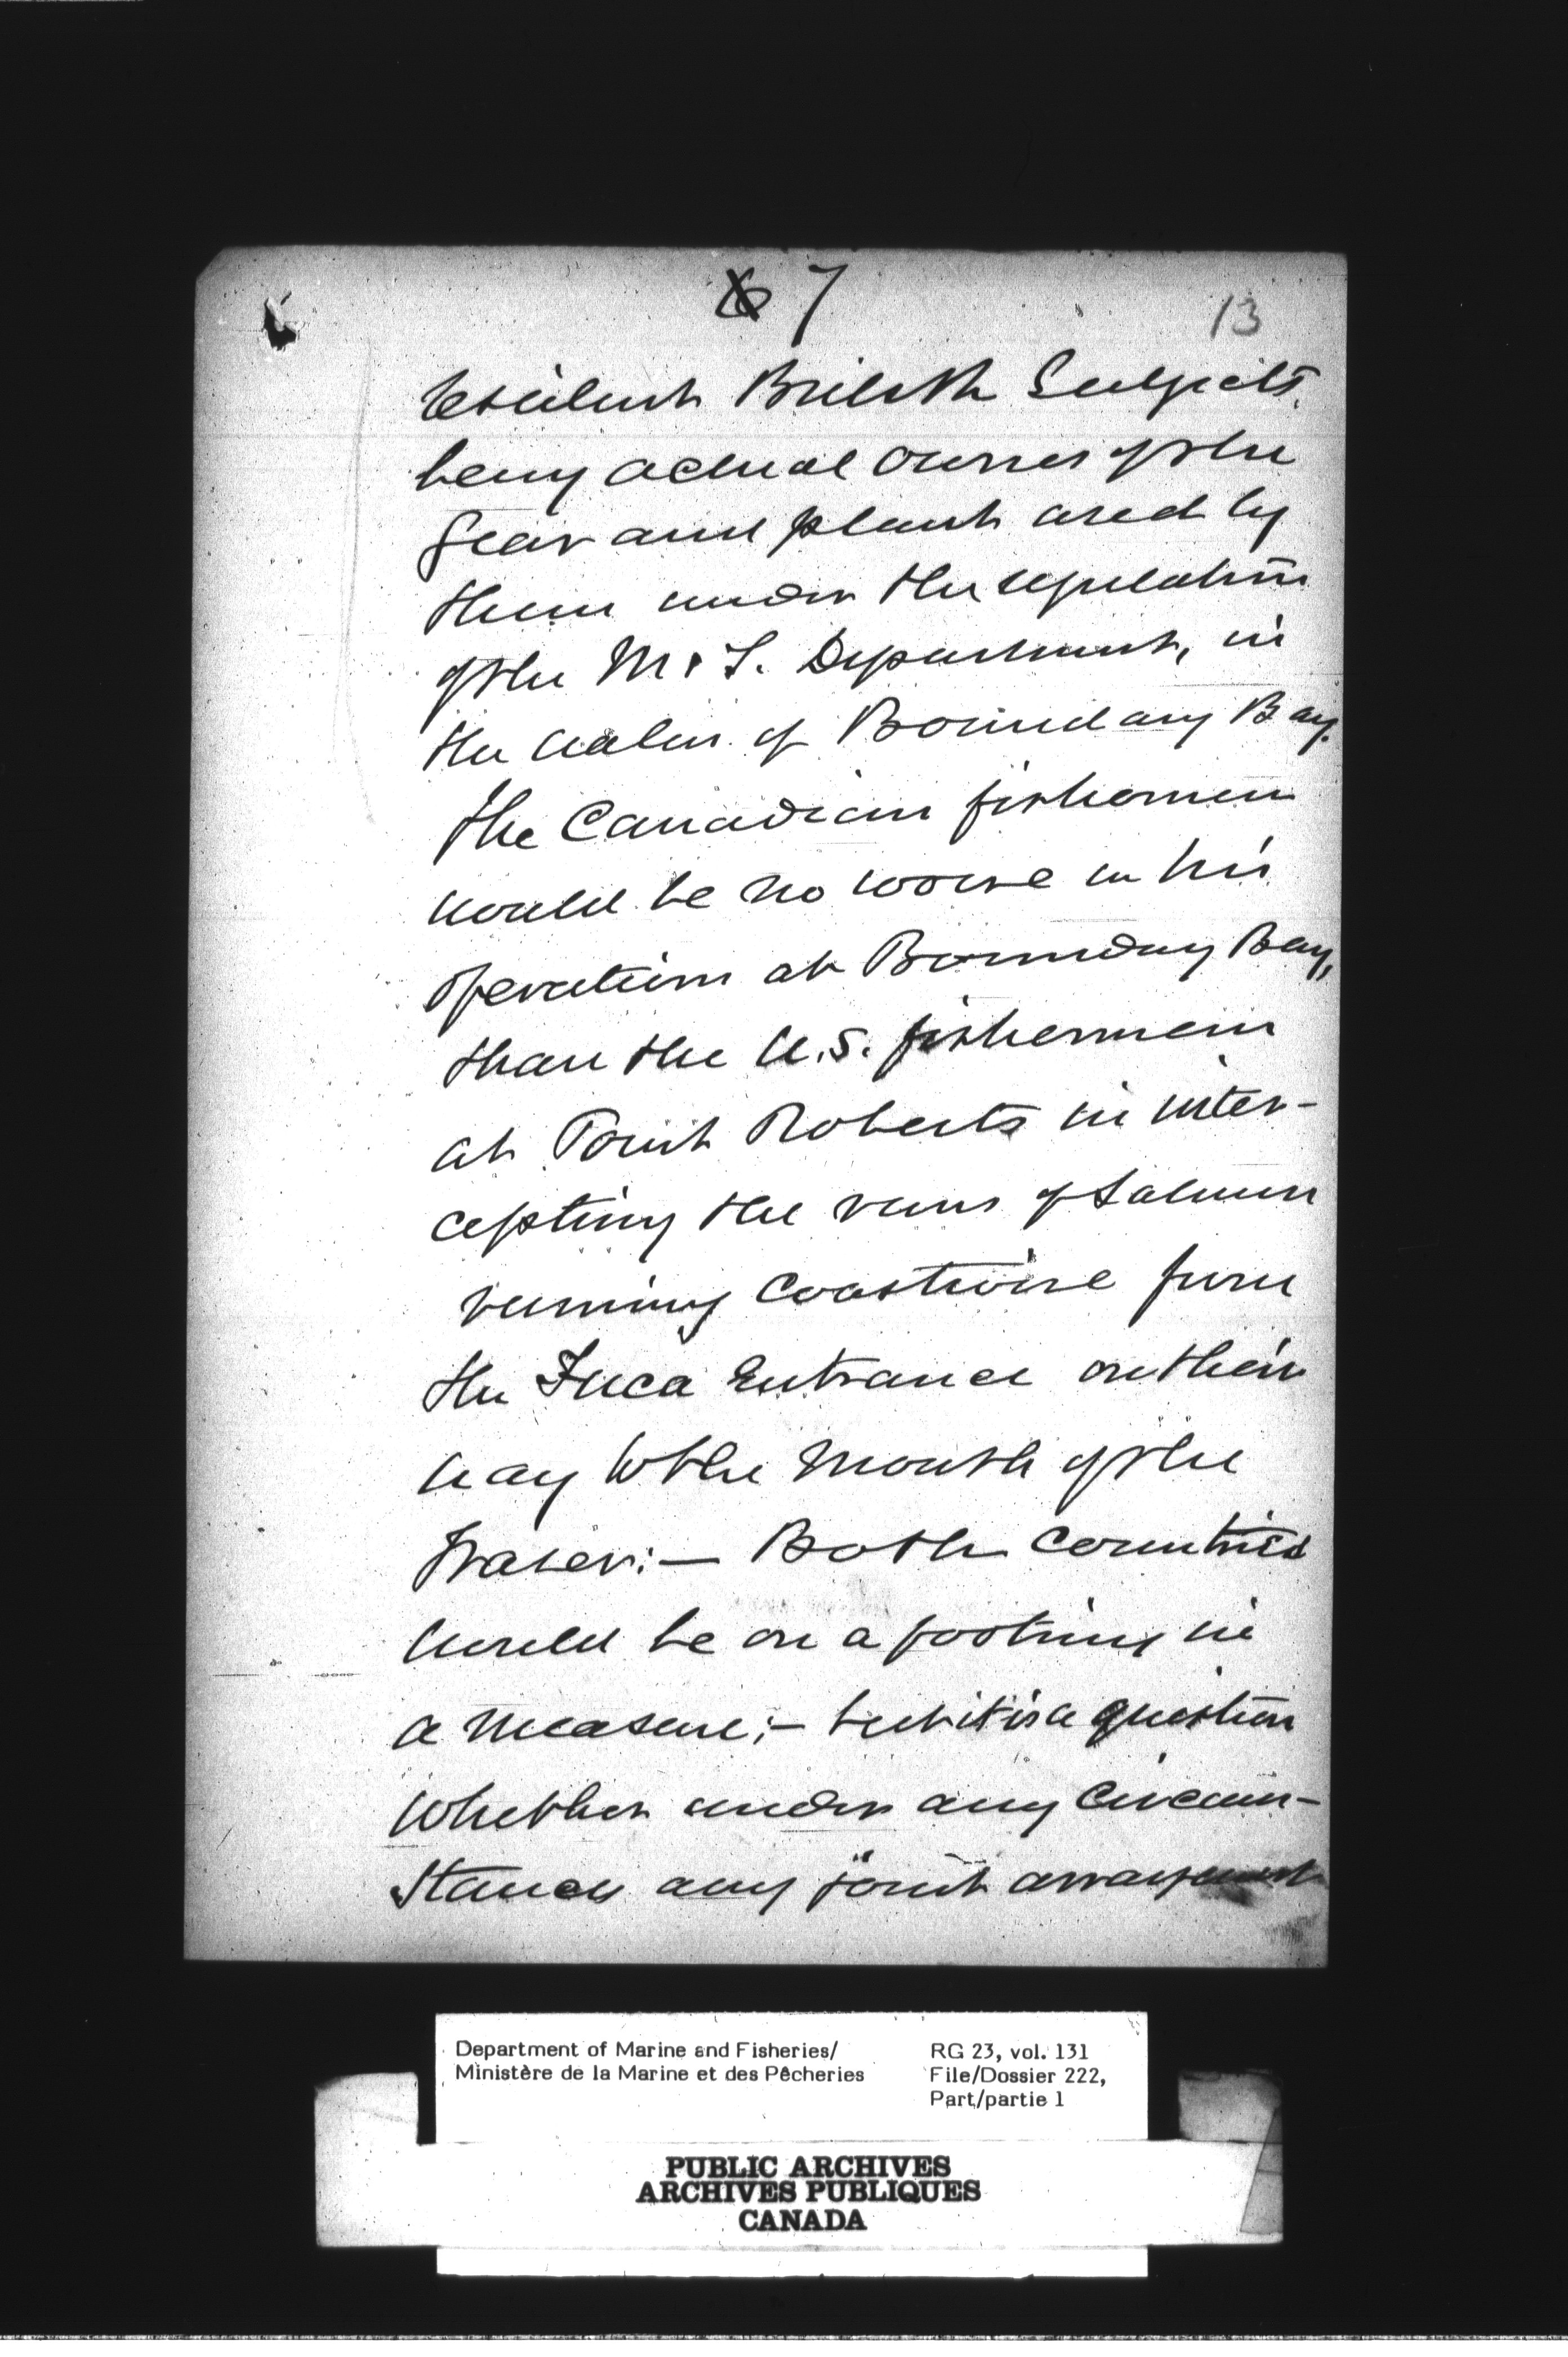 6 7
13
resident British Subjects,
being actual owners of the
gear and plant used by
them under the regulations
of the M & F. Department, in
the waters of Boundary Bay.
The Canadian fishermen
would be no worse in his
operations at Boundary Bay,
than the U.S. fishermen
at Point Roberts in inter-
cepting the runs of Salmon
running Coastwise from
the Fuca Entrance on their
way to the mouth of the
Fraser:— Both Countries
would be on a footing in
a measure;— but it is a question
whether under any Circum-
stances any joint arrangement
Department of Marine and Fisheries/
Ministère de la Marine et des Pêcheries
RG 23, vol. 131
File/Dossier 222,
Part/partie 1
PUBLIC ARCHIVES
ARCHIVES PUBLIQUES
CANADA